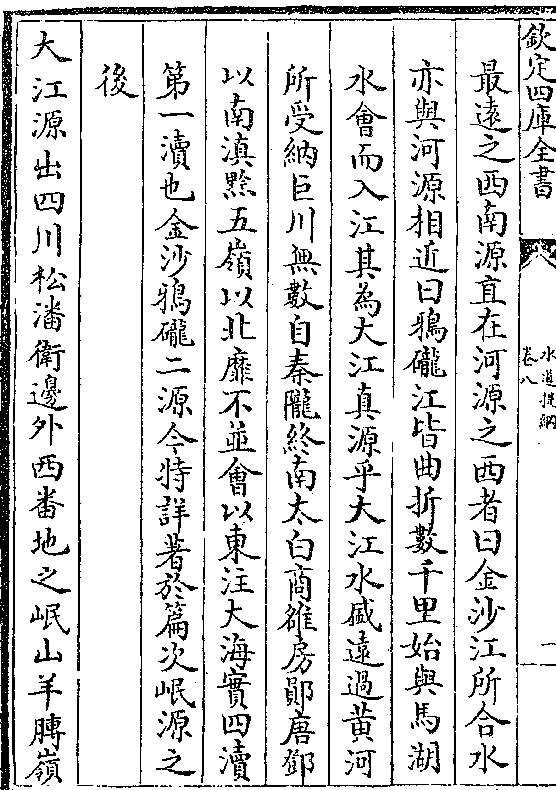 欽定四庫全書
水道提綱
卷八
一
最遠之西南源直在河源之西者曰金沙江所合水
亦與河源相近曰鴉礲江皆曲折數千里始與馬湖
水會而入江其為大江真源乎大江水盛遠過黄河
所受納巨川無數自秦隴終南太白商雒房鄖唐鄧
以南滇黔五嶺以北靡不並會以東注大海實四瀆
第一瀆也金沙鴉礲二源今特詳著於篇次岷源之
後
大江源出四川松潘衛邊外西番地之岷山羊膊嶺